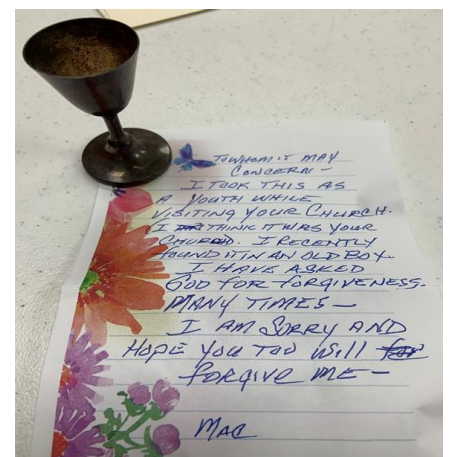 To whom it may
concern -
I took this as
a youth while
visiting your church.
I think it was your
church. I recently
found it in an old box.
I have asked
God for forgiveness.
many times -
I am sorry and
hope you too will
forgive me -
Mac